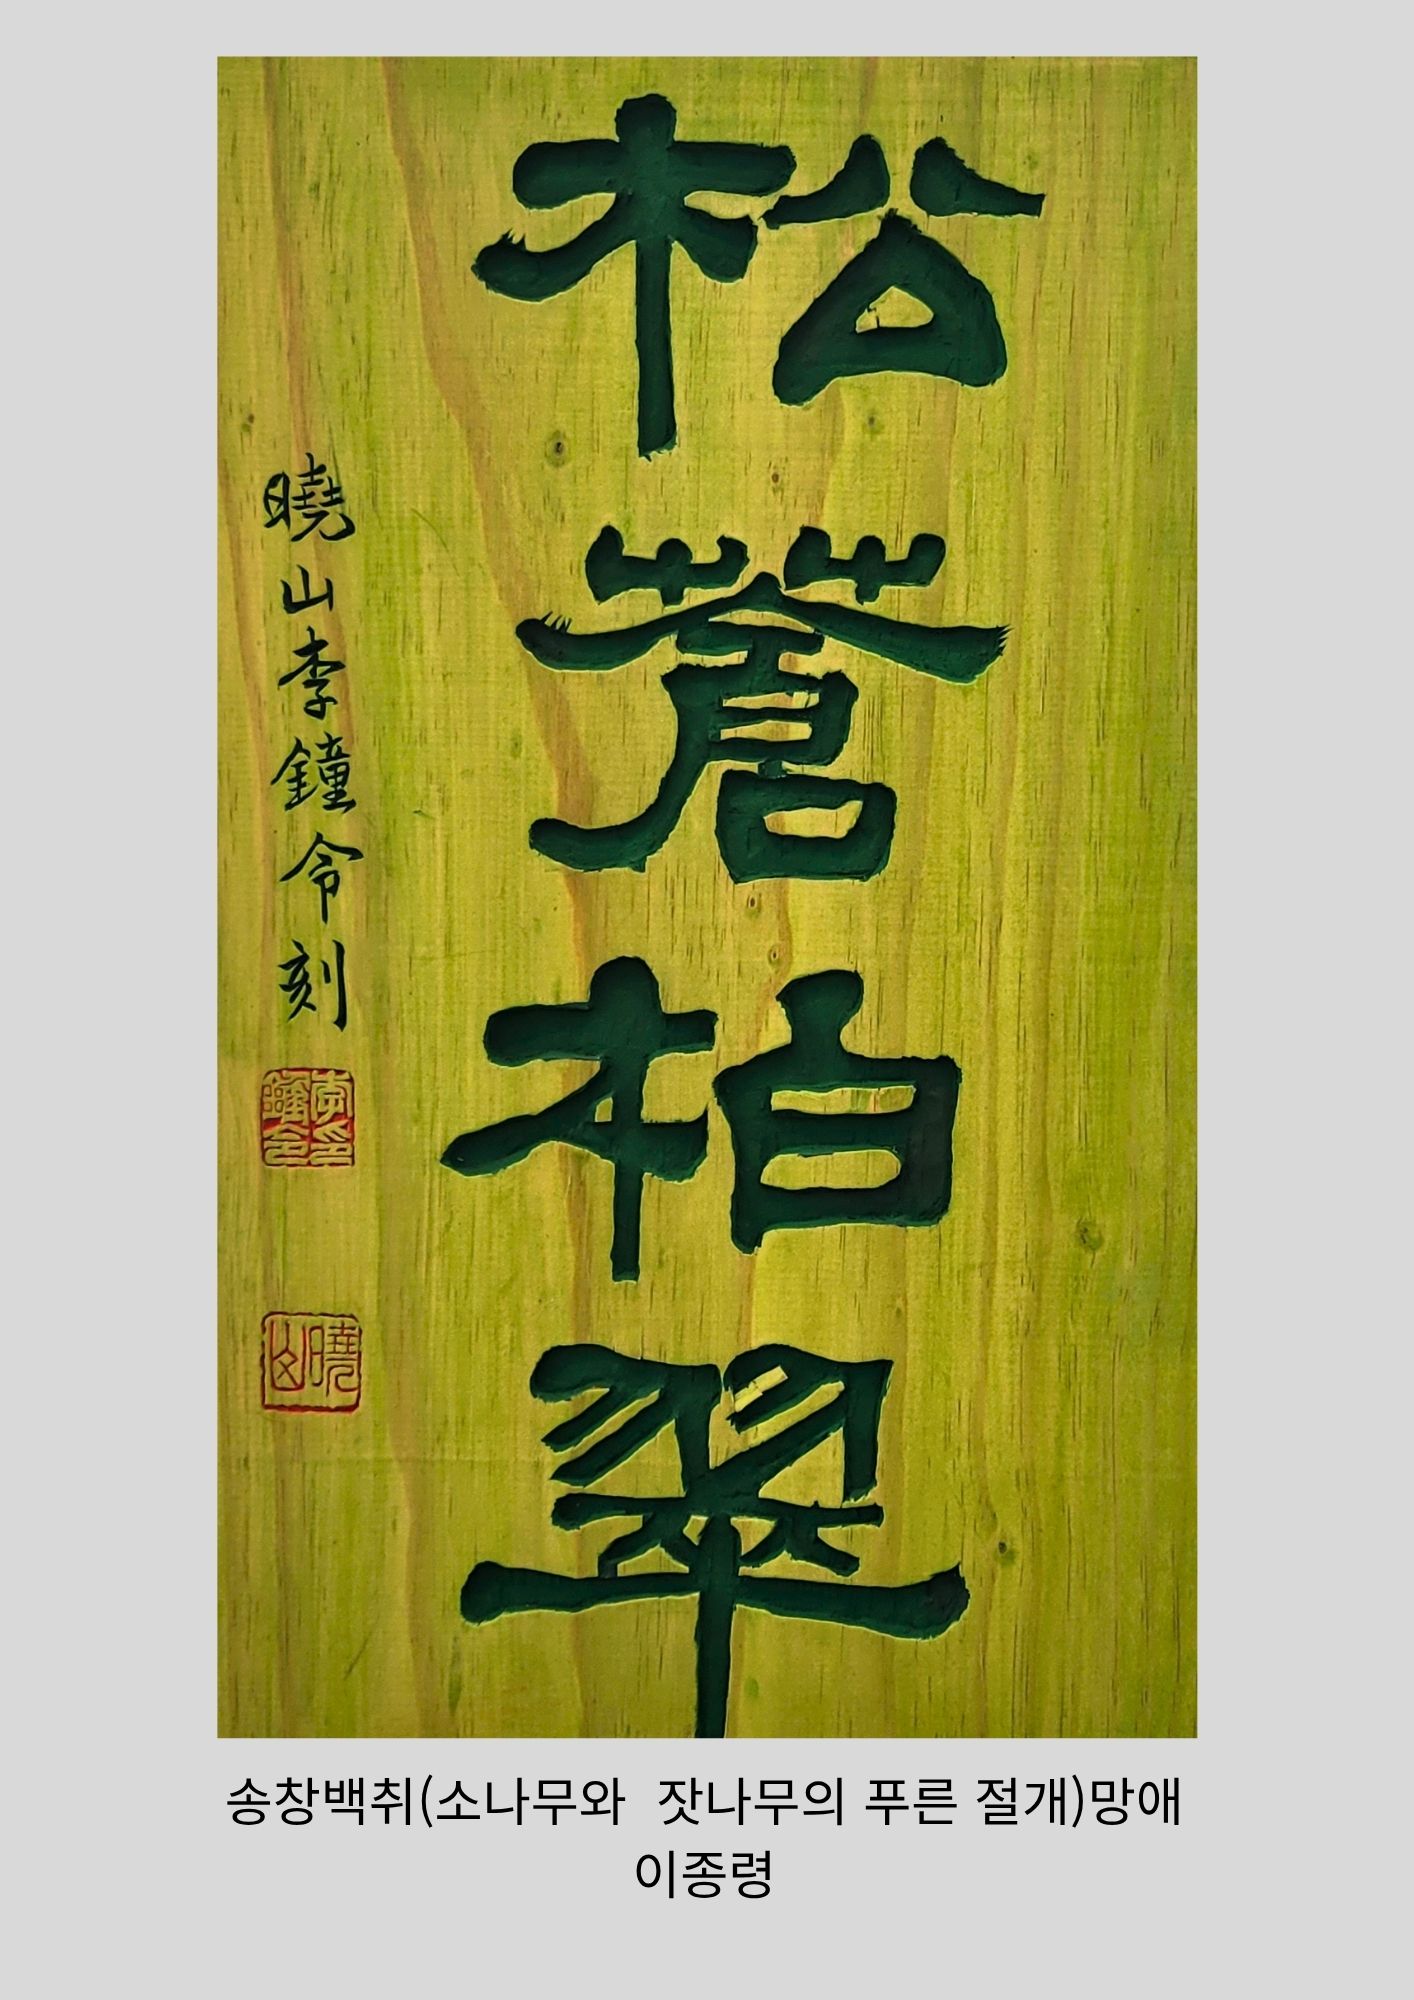 松蒼柏翠
曉山李鐘令刻
李印鐘令
曉山
송창백취(소나무와 잣나무의 푸른 절개)망애
이종령